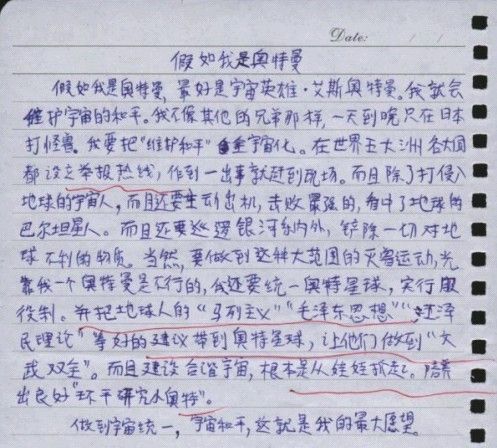 Date: / /
假如我是奥特曼
假如我是奥特曼，最好是宇宙英雄·艾斯奥特曼。我就会
维护宇宙的和平。我不像其他的兄弟那样，一天到晚只在日本
打怪兽。我要把"维护和平"宇宙化。在世界五大洲各大国
都设立举报热线，作到一出事就赶到现场。而且除了打侵入
地球的宇宙人，而且还要主动出机，击败最强的，看中了地球的
巴尔坦星人。而且还要巡逻银河系内外，铲除一切对地
球不利的物质。当然，要做到这种大范围的灭兽运动，光
靠我一个奥特曼是不行的，我还要统一奥特星球，实行服
役制。并把地球人的"马列主义""毛泽东思想""江泽
民理论"等好的建议带到奥特星球，让他们做到"文
武双全"。而且建设合谐宇宙，根本是从娃娃抓起。培养
出良好"环平研究小奥特"。
做到宇宙统一，宇宙和平，这就是我的最大愿望。